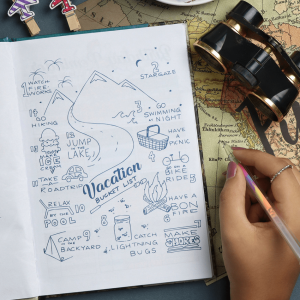 1 WATCH
FIRE
WORKS
2
STARGAZE
3 GO
SWIMMING
AT NIGHT
15
GO
HIKING
13
JUMP
IN THE
LAKE
HAVE
A PICNIC
ICE
CREAM
11 TAKE A
ROADTRIP
Vacation
BUCKET LIST
BIKE
RIDE
RELAX
BY THE
POOL
HAVE A
BON
FIRE
CAMP
IN THE
BACKYARD
9
8
CATCH
LIGHTNING
BUGS
7
MAKE
S'MORES